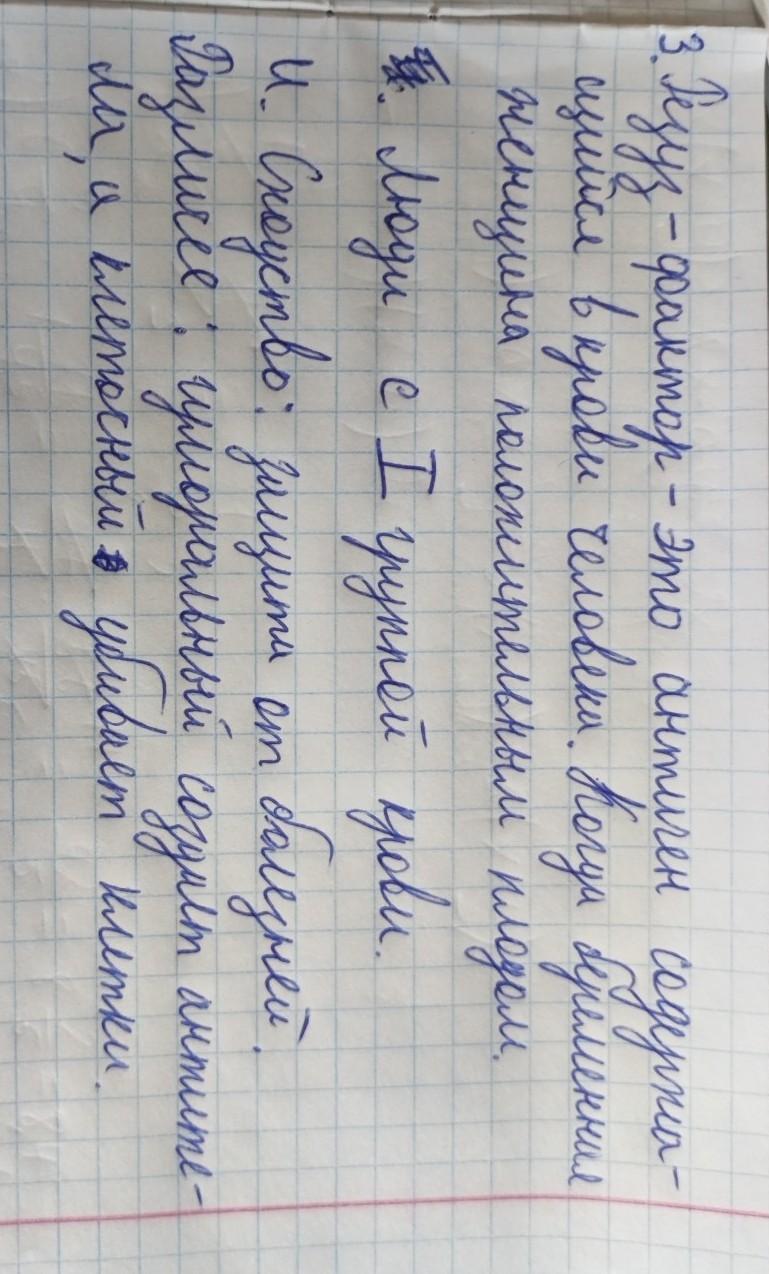 3. Резуз-фактор - это антиген содержа-
щийся в крови человека. Когда беременная
женщина положительным плодом.
. Люди с I группой крови.
4. Споуство: защита от болезней.
Различие: гуморальный создаёт антите-
ла, а клеточный убивает клетки.